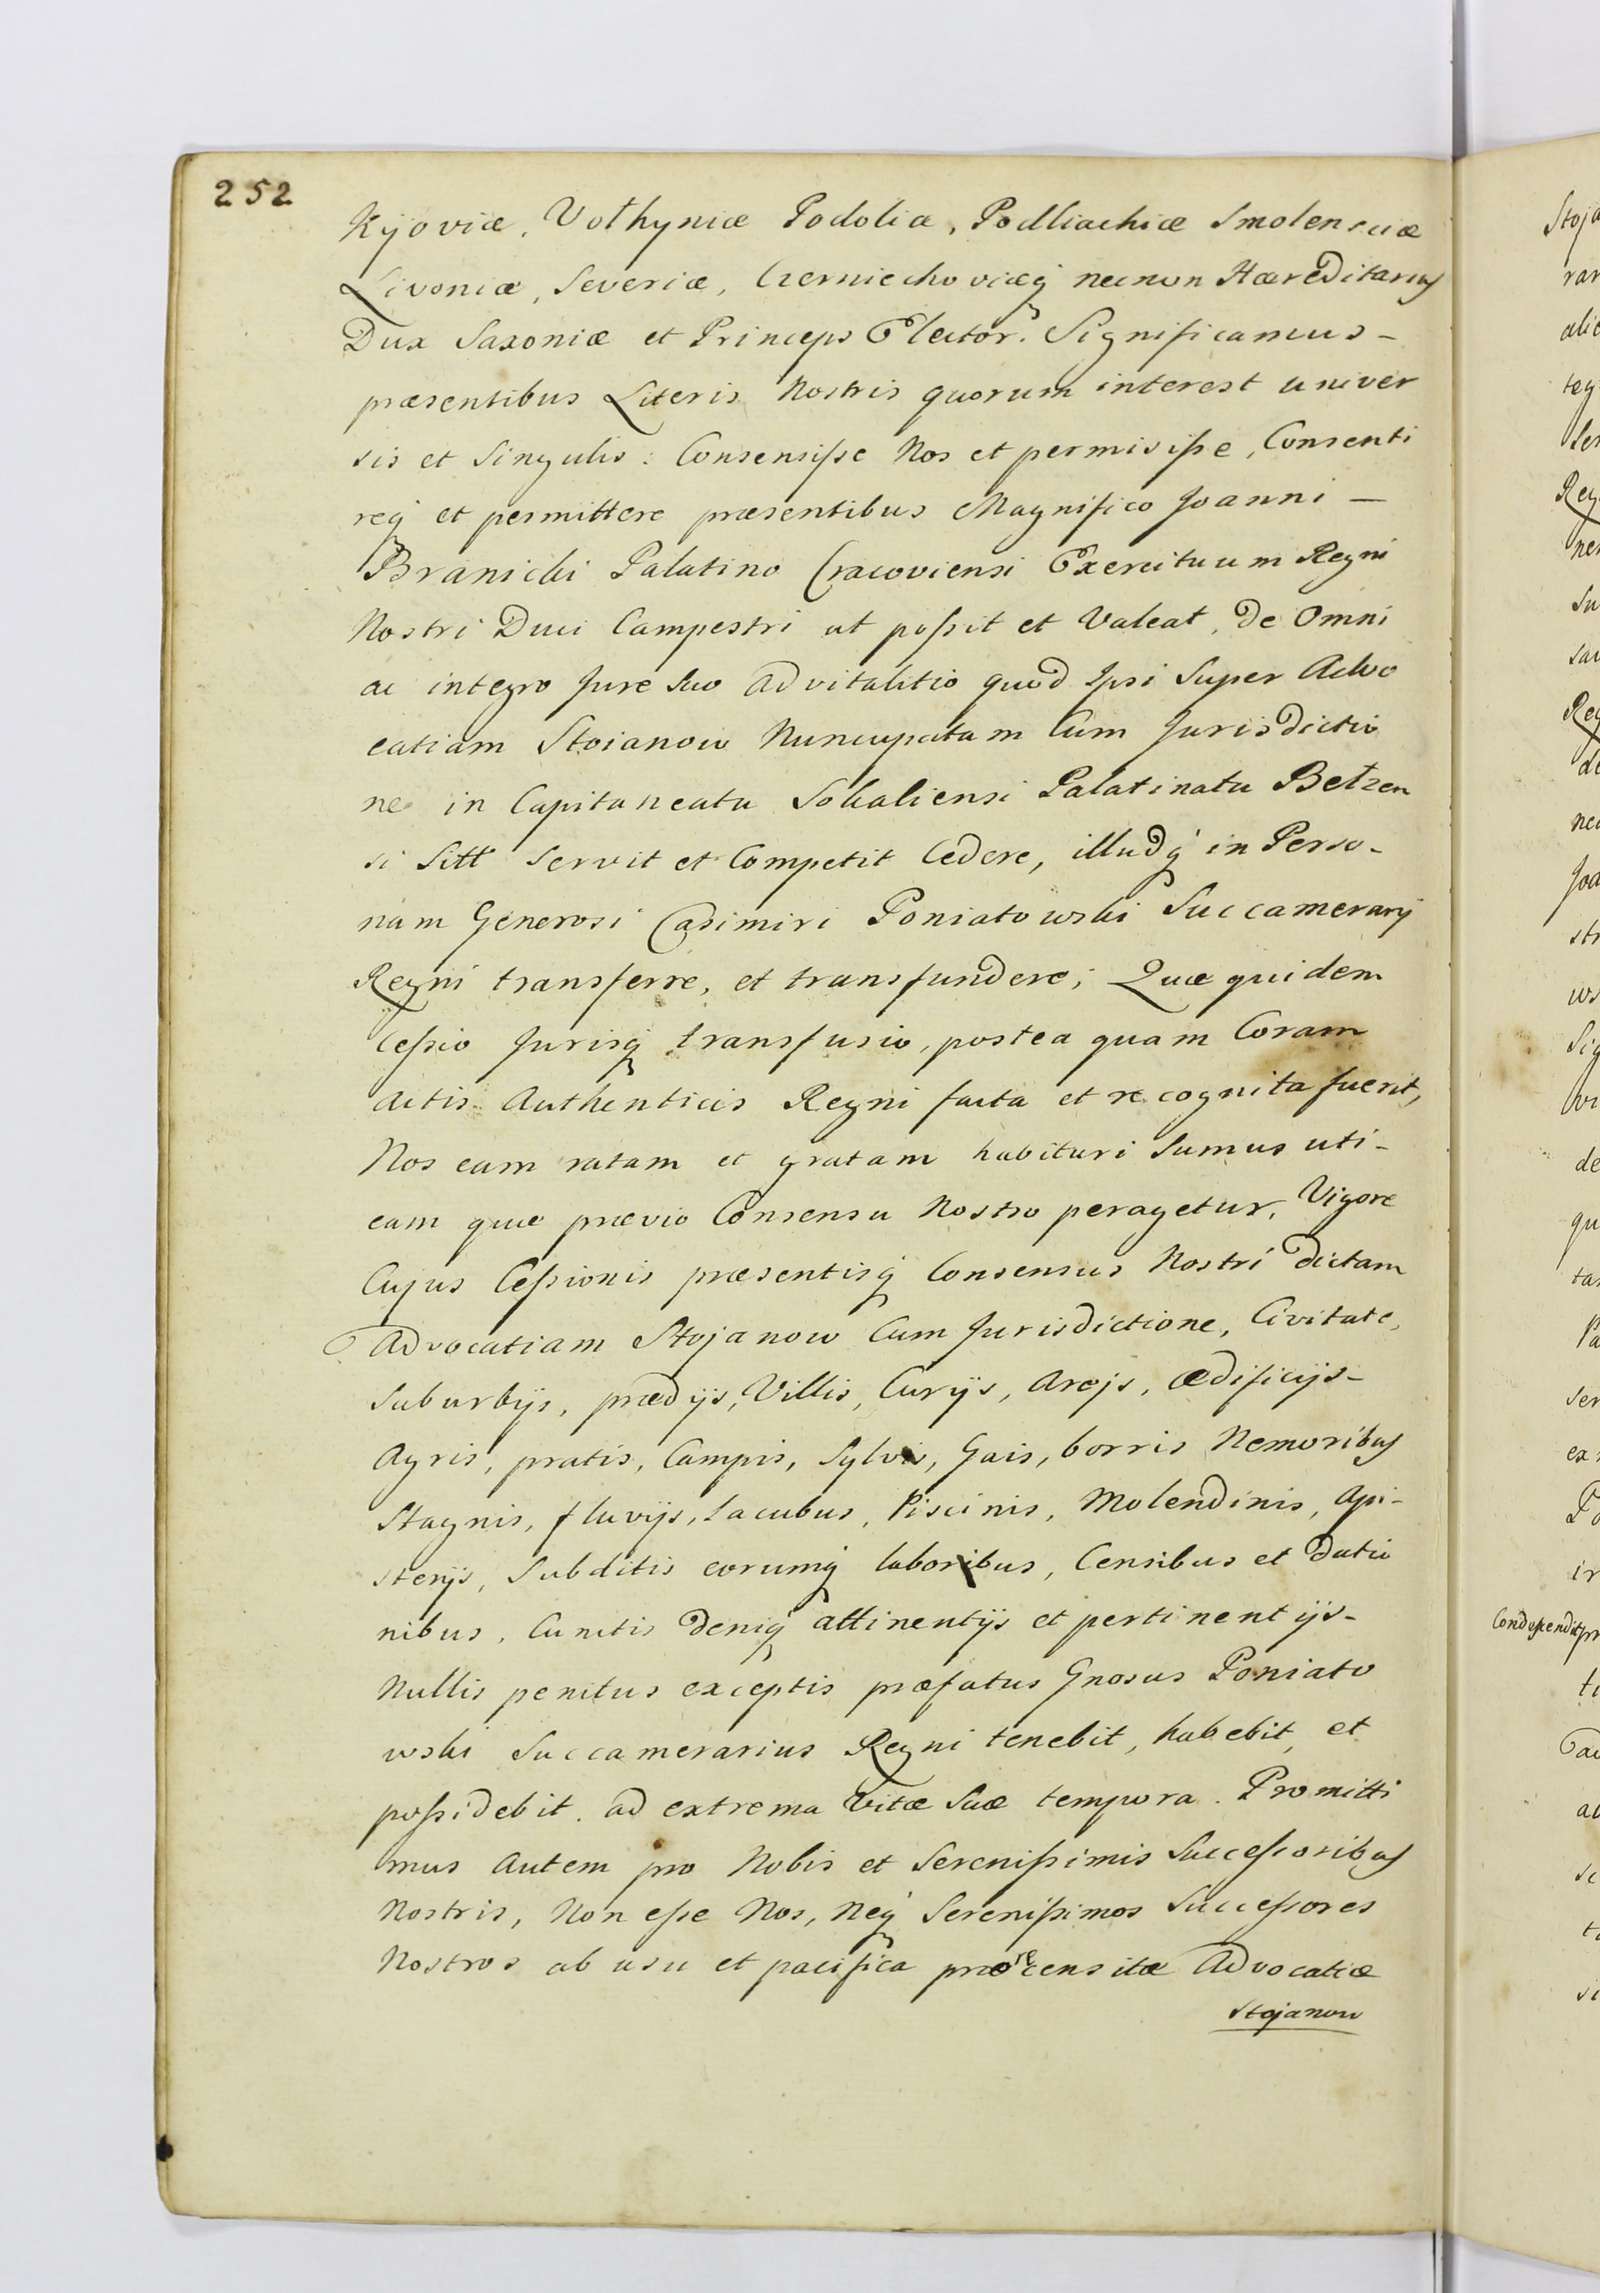 252
Kijoviæ, Volhyniæ Podoliæ, Podlachiæ Smolensciæ
Livoniæ, Severiæ, Czerniechoviæq necnon Hæreditarius
Dux Saxoniæ et Princeps Elector. Significamus-
præsentibus Literis Nostris quorum interest univer
sis et Singulis: Consensisse Nos et permisisse, Consenti
req et permittere præsentibus Magnifico Joanni —
Branicki Palatino Cracoviensi Exercituum Regni
Nostri Duci Campestri ut possit et Valeat, de Omni
ac integro Jure Suo Advitalitio quod Ipsi Super Advo
catiam Stoianow Nuncupatam Cum Jurisdictio
ne in Capitaneatu Sokaliensi Palatinatu Bełzen
si Sitt Servit et Competit Cedere, illudq in Perso-
nam Generosi Casimiri Poniatowski Succamerarij
Regni transferre, et transfundere; Quæ quidem
Cessio Jurisq transfusio, postea quam Coram
Actis Authenticis Regni facta et recognita fuerit,
Nos eam ratam et gratam habituri Sumus uti-
eam quæ prævio Consensu Nostro peragetur, Vigore
Cujus Cessionis præsentisq Consensus Nostri dictam
Advocatiam Stojanow Cum Jurisdictione, Civitate,
Suburbijs, prædijs, Villis, Curijs, Areis, Ædificijs-
Agris, pratis, Campis, Sylvis, Gais, borris Nemoribus
Stagnis, fluvijs, Lacubus, Piscinis, Molendinis, Api-
sterijs, Subditis eorumq laboribus, Censibus et Datio
nibus, Cunctis deniq attinentijs et pertinentijs-
Nullis penitus exceptis præfatus Gnosus Poniato
wski Succamerarius Regni tenebit, habebit, et
possidebit. ad extrema Vitæ Suæ tempora. Promitti
mus Autem pro Nobis et Serenissimis Successoribus
Nostris, Non esse Nos, Neq Serenissimos Successores
Nostros ab usu et pacifica prærecensitæ Advocatiæ
Stojanow